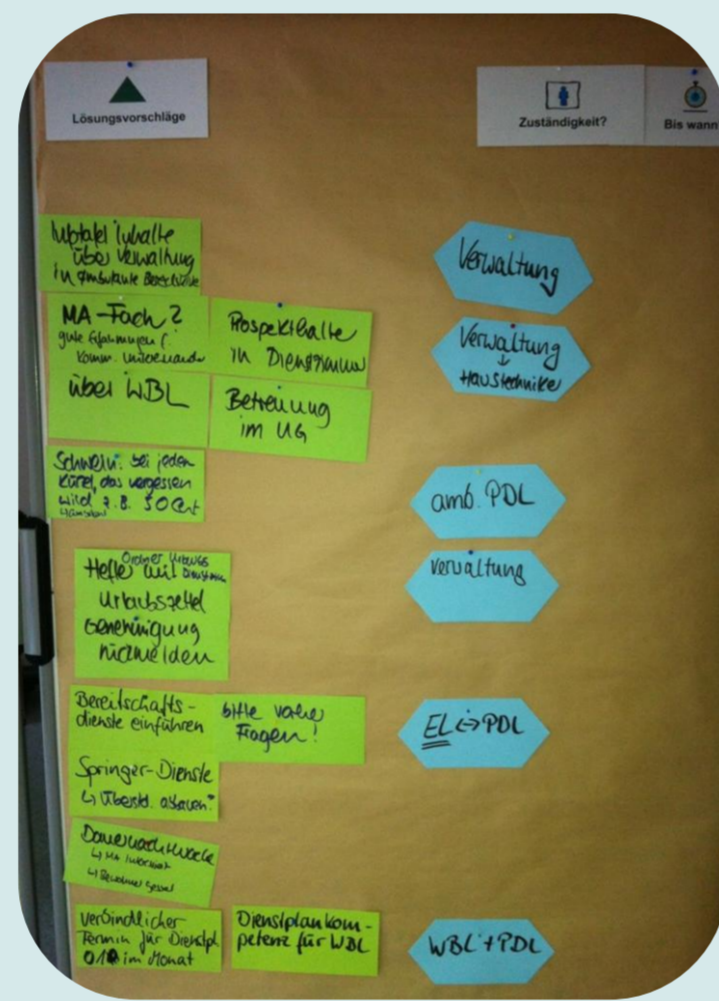 Lösungsvorschläge
Zuständigkeit?
Bis wann
Infotafel Inhalte
über Verwaltung
in ambulante Bereiche
Verwaltung
MA-Fach?
gute Erfahrungen
Komm. untereinander
Prospekthalter
in Dienstzimmer
Verwaltung
↓
Haustechniker
über WBL
Betreuung
im UG
Schwein: bei jedem
Kürzel, das vergessen
wird, z.B. 50 Cent
amb. PDL
Ordner Urlaubs
Hefter mit
Urlaubszettel
Genehmigung
rückmelden
Verwaltung
Bereitschafts-
dienste einführen
bitte vorher
Fragen!
EL ↔ PDL
Springer-Dienste
↳ Überstd.
Dauernachtwache
↳ MA
↳ Bewohner
Verbindlicher
Termin für Dienstpl.
im Monat
Dienstplankom-
petenz für WBL
WBL + PDL